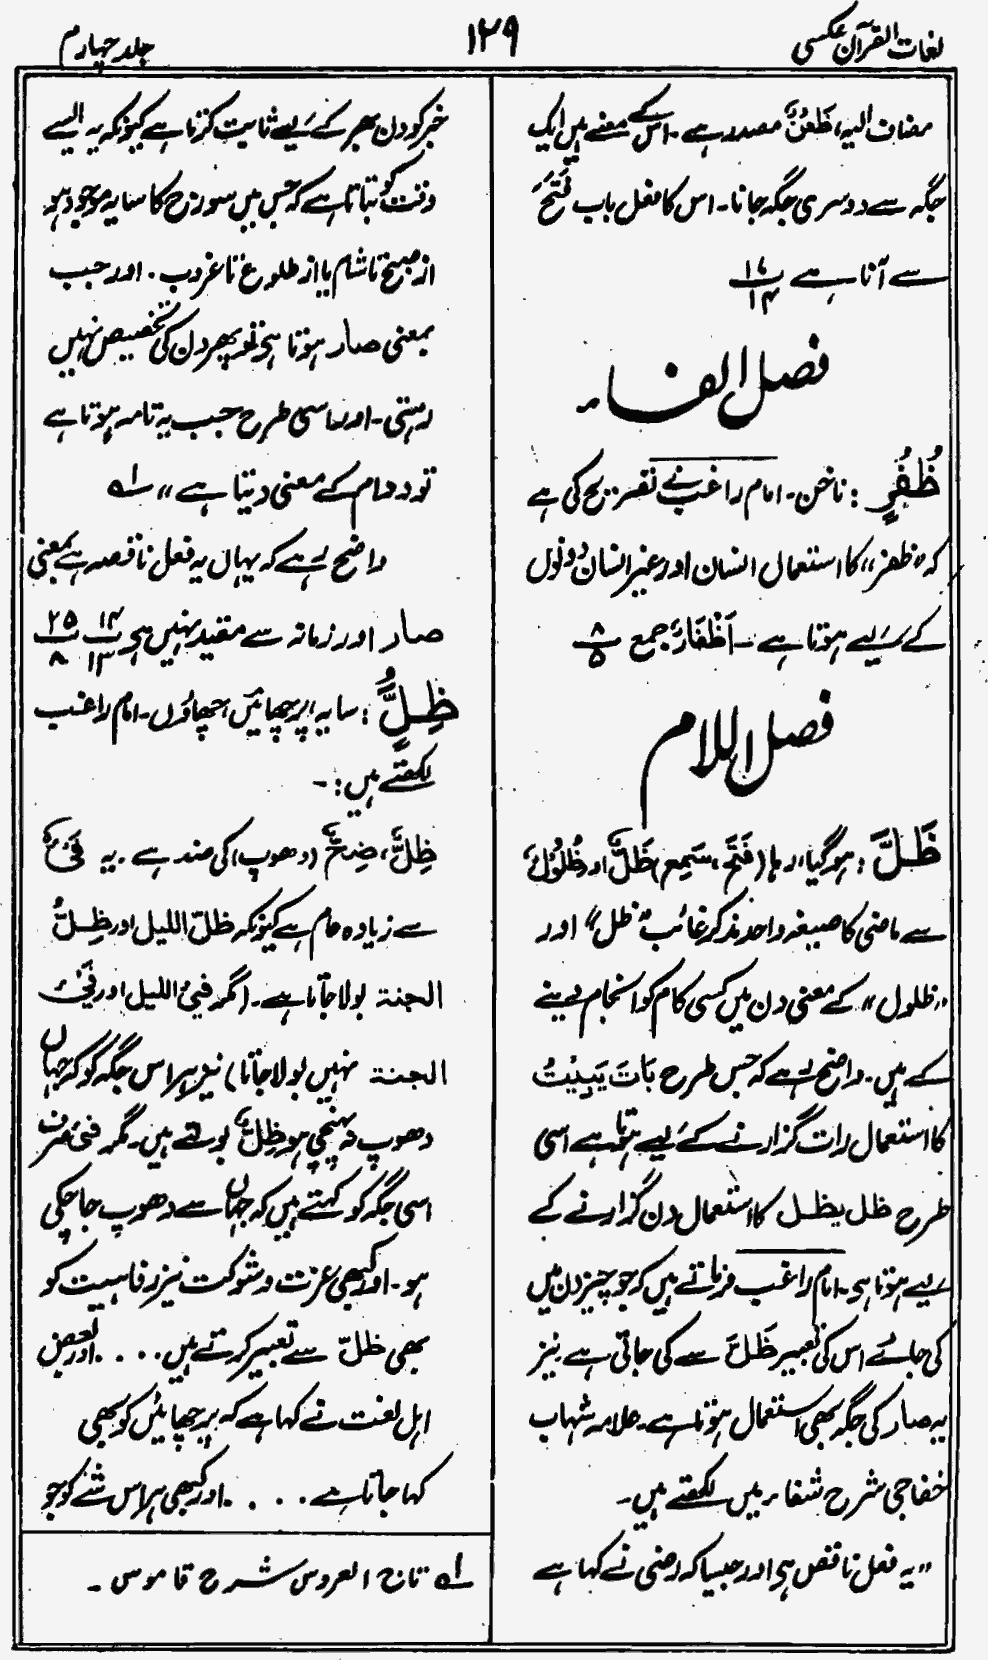 لغات القرآن عکسی
۱۲۹
جلد چہارم
مضاف الیہ، ظَعْنٌ مصدر ہے ۔ اس کے معنے ہیں ایک
جگہ سے دوسری جگہ جانا۔ اس کا فعل باب فَتَحَ
سے آتا ہے ۱۷/۱۴
فصل الفاء
ظُفُرٍ : ناخن۔ امام راغب نے تصریح کی ہے
کہ "ظفر" کا استعمال انسان اور غیر انسان دونوں
کے لیے ہوتا ہے ۔ اَظْفَارٌ جمع ۸/۵
فصل اللام
ظَلَّ : ہو گیا، رہا (فَتَحَ، سَمِعَ) ظَلٌّ اور ظُلُوْلٌ
سے ماضی کا صیغہ واحد مذکر غائب "ظل" اور
"ظلول" کے معنی دن میں کسی کام کو انجام دینے
کے ہیں۔ واضح رہے کہ جس طرح بَاتَ يَبِيْتُ
کا استعمال رات گزارنے کے لیے ہوتا ہے اسی
طرح ظل یظل کا استعمال دن گزارنے کے
لیے ہوتا ہی۔ امام راغب فرماتے ہیں کہ جو چیز دن میں
کی جائے اس کی تعبیر ظَلَّ سے کی جاتی ہے نیز
یہ صار کی جگہ بھی استعمال ہوتا ہے۔ علامہ شہاب
خفاجی شرح شفاء میں لکھتے ہیں۔
"یہ فعل ناقص ہی اور جیسا کہ رضی نے کہا ہے
خبر کو دن بھر کے لیے ثابت کرتا ہے کیونکہ یہ ایسے
وقت کو بتاتا ہے کہ جس میں سورج کا سایہ موجود ہو
از صبح تا شام یا از طلوع تا غروب ۔ اور جب
بمعنی صار ہوتا ہی تو پھر دن کی تخصیص نہیں
رہتی۔ اور اسی طرح جب یہ تامہ ہوتا ہے
تو دوام کے معنی دیتا ہے" ؎۱
واضح رہے کہ یہاں یہ فعل ناقصہ ہے بمعنی
صار اور زمانہ سے مقید نہیں ہی ۱۴/۱۳ ۲۵/۸
ظِلٍّ : سایہ، پرچھائیں، چھاؤں۔ امام راغب
لکھتے ہیں :۔
ظِلٌّ، ضِحٌّ (دھوپ) کی ضد ہے ۔ یہ فَیْءٌ
سے زیادہ عام ہے کیونکہ ظلّ اللیل اور ظِلُّ
الجنۃ بولا جاتا ہے۔ (مگر فیءُ اللیل اور فَیْءُ
الجنۃ نہیں بولا جاتا) نیز ہر اس جگہ کو کہ جہاں
دھوپ نہ پہنچی ہو ظِلٌّ بولتے ہیں۔ مگر فیْ صرف
اسی جگہ کو کہتے ہیں کہ جہاں سے دھوپ جا چکی
ہو۔ اور کبھی عزت و شوکت نیز رفاہیت کو
بھی ظلّ سے تعبیر کرتے ہیں . . . . اور بعض
اہل لغت نے کہا ہے کہ پرچھائیں کو بھی
کہا جاتا ہے . . . . اور کبھی ہر اس شے کو جو
؎۱ تاج العروس شرح قاموس ۔